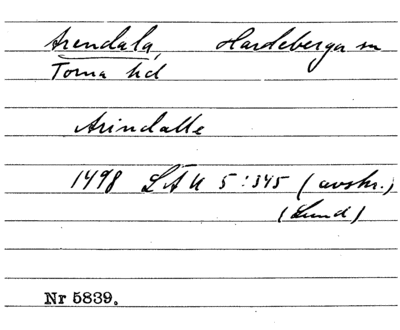 Arendala, Hardeberga sn
Torna hd
Arindalle
1498 LÄU 5:345 (avskr.)
(Lund)
Nr 5839.